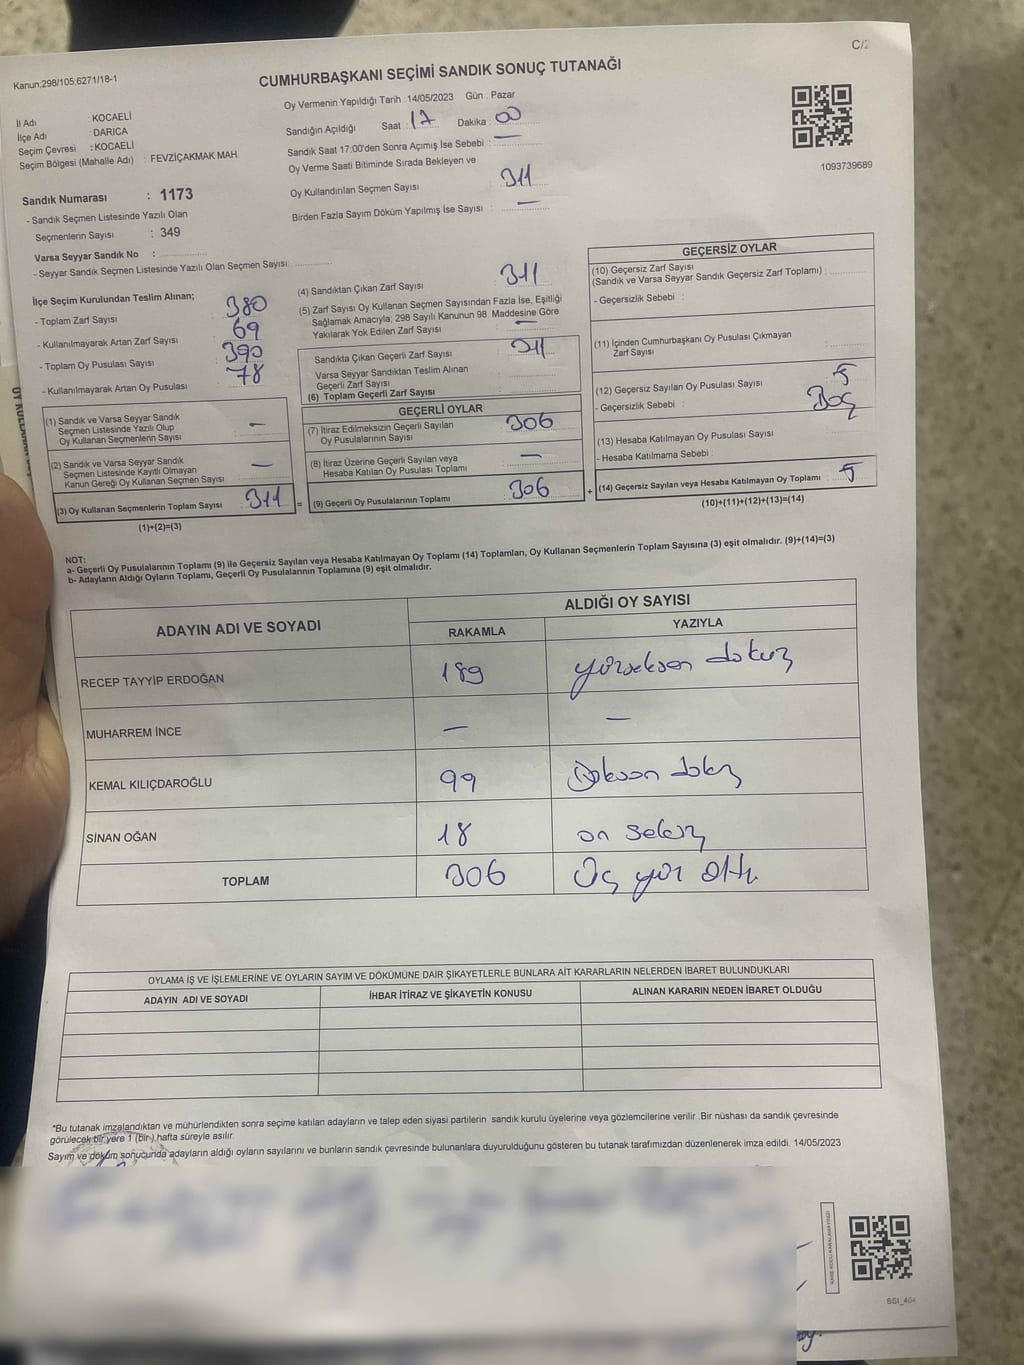 C/2
Kanun:298/105;6271/18-1
CUMHURBAŞKANI SEÇİMİ SANDIK SONUÇ TUTANAĞI
İl Adı : KOCAELİ
İlçe Adı : DARICA
Seçim Çevresi : KOCAELİ
Seçim Bölgesi (Mahalle Adı) : FEVZİÇAKMAK MAH.
Oy Vermenin Yapıldığı Tarih :14/05/2023 Gün : Pazar
Sandığın Açıldığı Saat : 17 Dakika : 00
Sandık Saat 17:00'den Sonra Açımış İse Sebebi : —
Oy Verme Saati Bitiminde Sırada Bekleyen ve
Oy Kullandırılan Seçmen Sayısı 311
Birden Fazla Sayım Döküm Yapılmış İse Sayısı : —
1093739689
Sandık Numarası : 1173
- Sandık Seçmen Listesinde Yazılı Olan
Seçmenlerin Sayısı : 349
Varsa Seyyar Sandık No :
- Seyyar Sandık Seçmen Listesinde Yazılı Olan Seçmen Sayısı:
İlçe Seçim Kurulundan Teslim Alınan;
- Toplam Zarf Sayısı 380
- Kullanılmayarak Artan Zarf Sayısı 69
- Toplam Oy Pusulası Sayısı 390
- Kullanılmayarak Artan Oy Pusulası 78
(1) Sandık ve Varsa Seyyar Sandık
Seçmen Listesinde Yazılı Olup
Oy Kullanan Seçmenlerin Sayısı —
(2) Sandık ve Varsa Seyyar Sandık
Seçmen Listesinde Kayıtlı Olmayan
Kanun Gereği Oy Kullanan Seçmen Sayısı —
(3) Oy Kullanan Seçmenlerin Toplam Sayısı 311 =
(1)+(2)=(3)
(4) Sandıktan Çıkan Zarf Sayısı 311
(5) Zarf Sayısı Oy Kullanan Seçmen Sayısından Fazla İse, Eşitliği
Sağlamak Amacıyla; 298 Sayılı Kanunun 98. Maddesine Göre
Yakılarak Yok Edilen Zarf Sayısı —
Sandıkta Çıkan Geçerli Zarf Sayısı 311
Varsa Seyyar Sandıktan Teslim Alınan
Geçerli Zarf Sayısı
(6) Toplam Geçerli Zarf Sayısı
GEÇERLİ OYLAR
(7) İtiraz Edilmeksizin Geçerli Sayılan
Oy Pusulalarının Sayısı 306
(8) İtiraz Üzerine Geçerli Sayılan veya
Hesaba Katılan Oy Pusulası Toplamı —
(9) Geçerli Oy Pusulalarının Toplamı 306 +
GEÇERSİZ OYLAR
(10) Geçersiz Zarf Sayısı
(Sandık ve Varsa Seyyar Sandık Geçersiz Zarf Toplamı) :
- Geçersizlik Sebebi :
(11) İçinden Cumhurbaşkanı Oy Pusulası Çıkmayan
Zarf Sayısı
(12) Geçersiz Sayılan Oy Pusulası Sayısı 5
- Geçersizlik Sebebi : Boş
(13) Hesaba Katılmayan Oy Pusulası Sayısı
- Hesaba Katılmama Sebebi :
(14) Geçersiz Sayılan veya Hesaba Katılmayan Oy Toplamı : 5
(10)+(11)+(12)+(13)=(14)
NOT:
a- Geçerli Oy Pusulalarının Toplamı (9) ile Geçersiz Sayılan veya Hesaba Katılmayan Oy Toplamı (14) Toplamları, Oy Kullanan Seçmenlerin Toplam Sayısına (3) eşit olmalıdır. (9)+(14)=(3)
b- Adayların Aldığı Oyların Toplamı, Geçerli Oy Pusulalarının Toplamına (9) eşit olmalıdır.
ADAYIN ADI VE SOYADI
ALDIĞI OY SAYISI
RAKAMLA YAZIYLA
RECEP TAYYİP ERDOĞAN 189 yüzseksen dokuz
MUHARREM İNCE — —
KEMAL KILIÇDAROĞLU 99 Doksan dokuz
SİNAN OĞAN 18 on sekiz
TOPLAM 306 Üç yüz altı
OYLAMA İŞ VE İŞLEMLERİNE VE OYLARIN SAYIM VE DÖKÜMÜNE DAİR ŞİKAYETLERLE BUNLARA AİT KARARLARIN NELERDEN İBARET BULUNDUKLARI
ADAYIN ADI VE SOYADI İHBAR İTİRAZ VE ŞİKAYETİN KONUSU ALINAN KARARIN NEDEN İBARET OLDUĞU
"Bu tutanak imzalandıktan ve mühürlendikten sonra seçime katılan adayların ve talep eden siyasi partilerin sandık kurulu üyelerine veya gözlemcilerine verilir .Bir nüshası da sandık çevresinde
görülecek bir yere 1 (bir) hafta süreyle asılır.
Sayım ve döküm sonucunda adayların aldığı oyların sayılarını ve bunların sandık çevresinde bulunanlara duyurulduğunu gösteren bu tutanak tarafımızdan düzenlenerek imza edildi. 14/05/2023